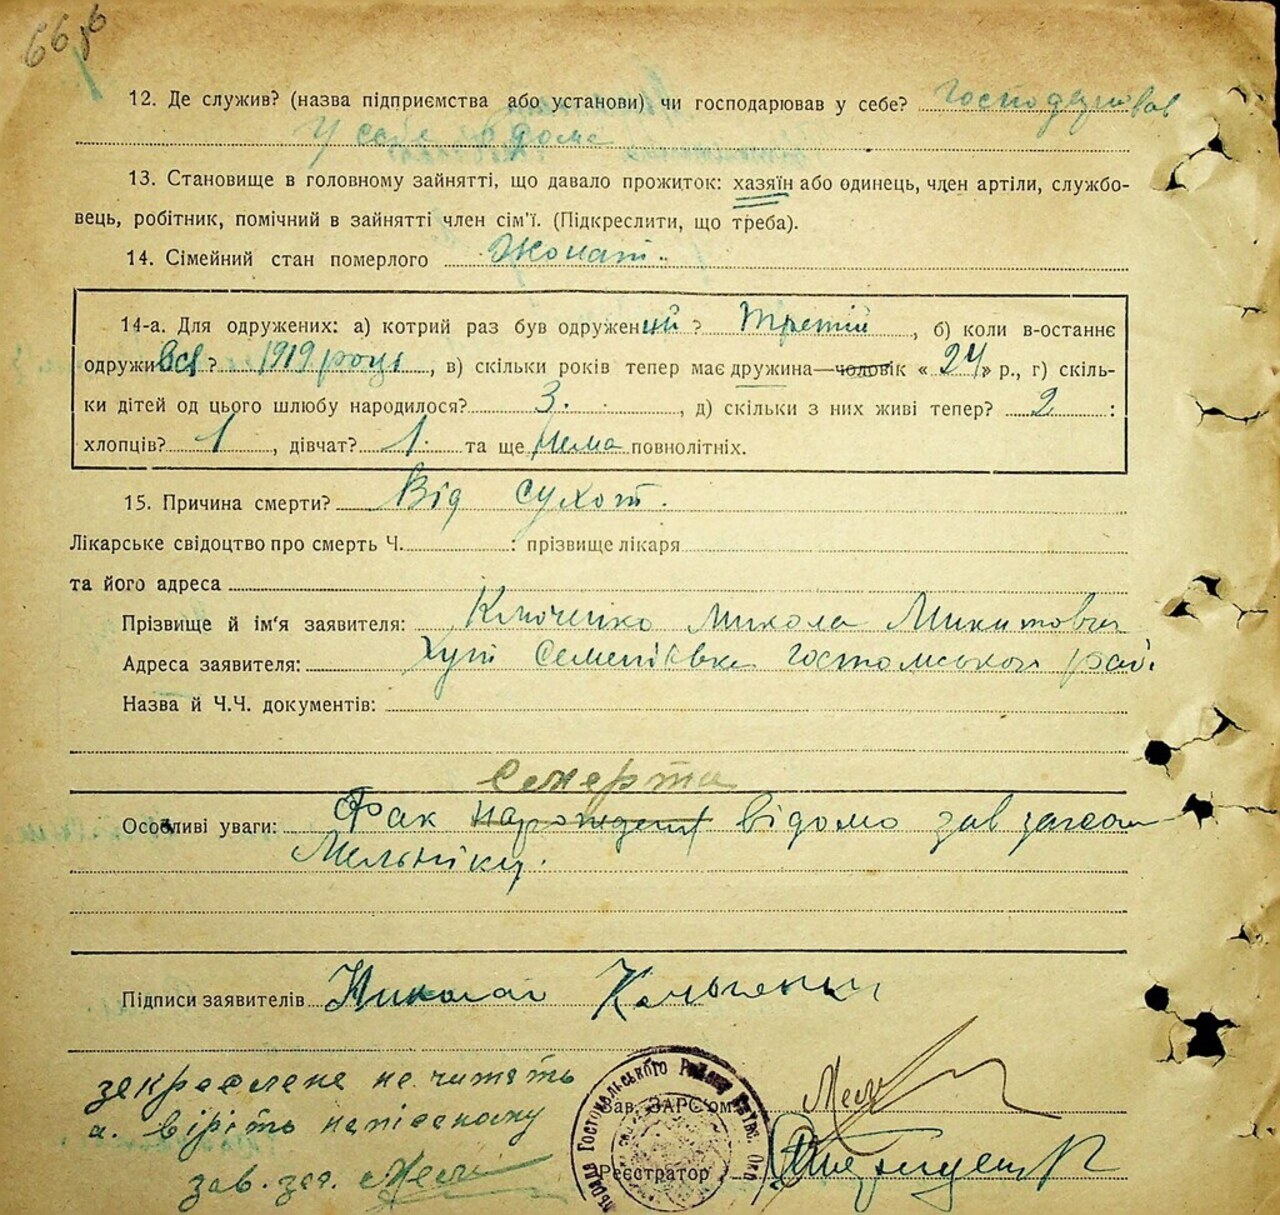 66
12. Де служив? (назва підприємства або установи) чи господарював у себе? господарював
у себе дома
13. Становище в головному зайнятті, що давало прожиток: хазяїн або одинець, член артіли, службо-
вець, робітник, помічний в зайнятті член сім'ї. (Підкреслити, що треба).
14. Сімейний стан померлого Жонат
14-а. Для одружених: а) котрий раз був одружений? Третій, б) коли в-останнє
одружився? 1919 році, в) скільки років тепер має дружина—чоловік « 24 » р., г) скіль-
ки дітей од цього шлюбу народилося? 3. , д) скільки з них живі тепер? 2 :
хлопців? 1 , дівчат? 1 та ще нема повнолітніх.
15. Причина смерти? Від сухот.
Лікарське свідоцтво про смерть Ч. : прізвище лікаря
та його адреса
Прізвище й ім'я заявителя: Микола Микитович
Адреса заявителя: Хут Семенівка Гостомського рай.
Назва й Ч.Ч. документів:
Смерти
Особливі уваги: Фак народження відомо зав загсом
Мельніку.
Підписи заявителів Николай
закреслене не читать
а. вірить написаному
зав. заг.
Зав. ЗАРС'ом
Реєстратор
Гостомського Району Київс. Окр